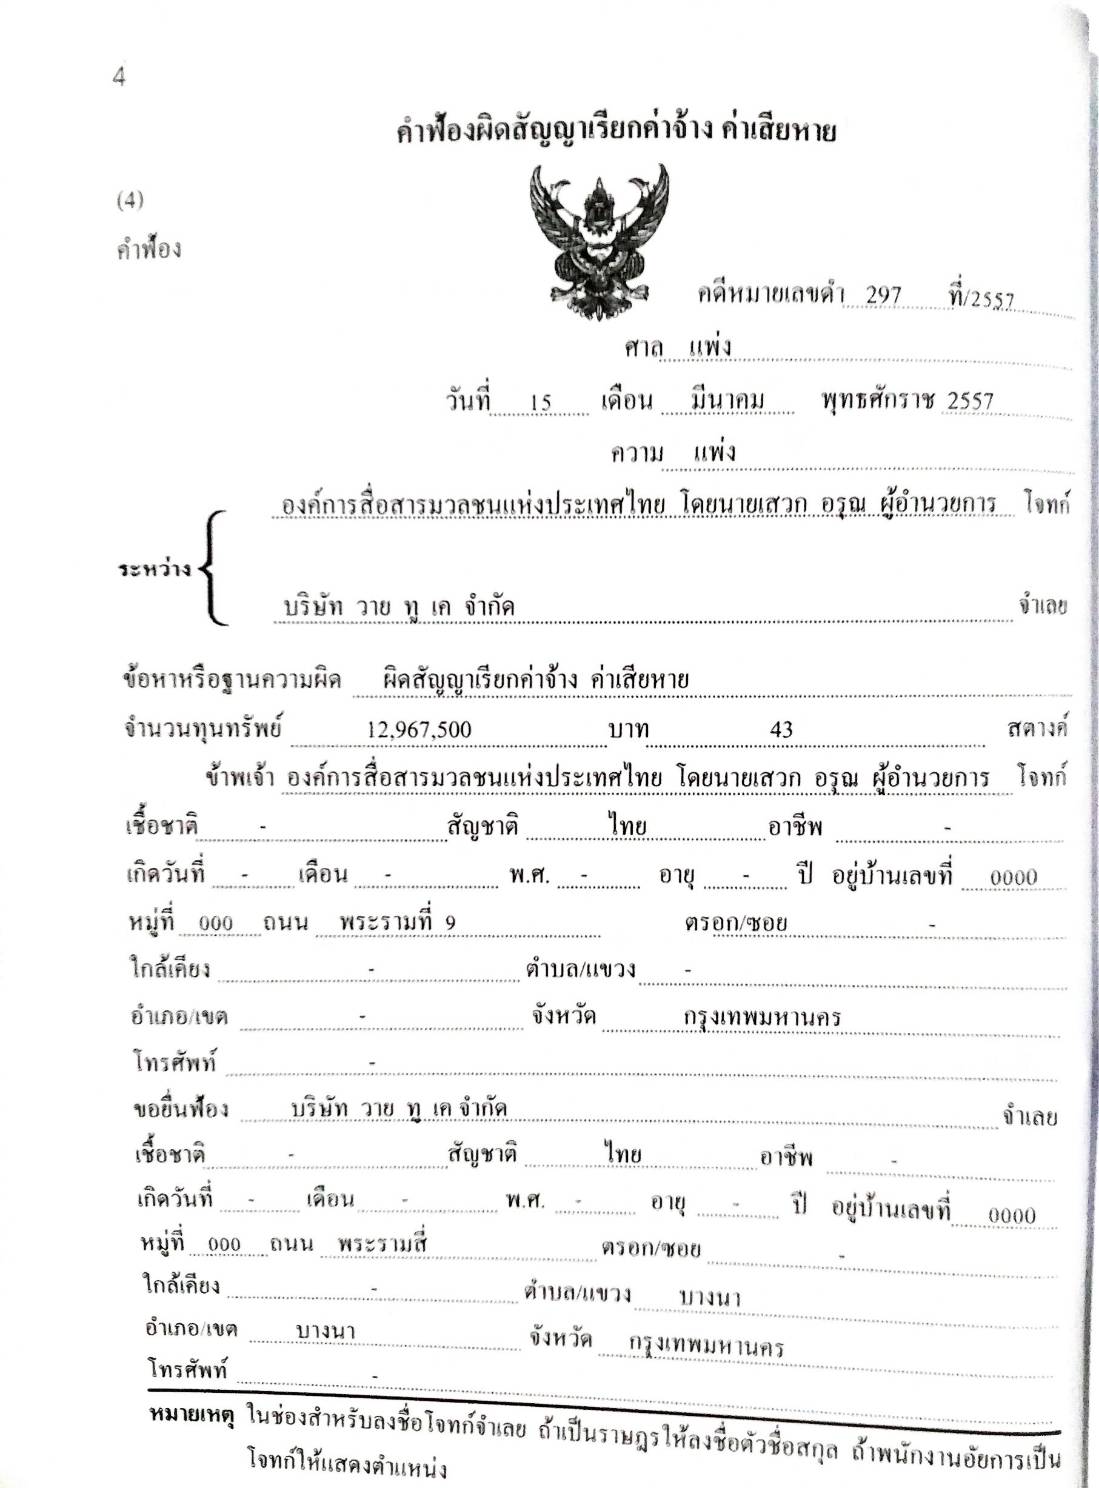 4
คำฟ้องผิดสัญญาเรียกค่าจ้าง ค่าเสียหาย
(4)
คำฟ้อง
คดีหมายเลขดำ 297 ที่/2557
ศาล แพ่ง
วันที่ 15 เดือน มีนาคม พุทธศักราช 2557
ความ แพ่ง
องค์การสื่อสารมวลชนแห่งประเทศไทย โดยนายเสวก อรุณ ผู้อำนวยการ โจทก์
ระหว่าง
บริษัท วาย ทู เค จำกัด จำเลย
ข้อหาหรือฐานความผิด ผิดสัญญาเรียกค่าจ้าง ค่าเสียหาย
จำนวนทุนทรัพย์ 12,967,500 บาท 43 สตางค์
ข้าพเจ้า องค์การสื่อสารมวลชนแห่งประเทศไทย โดยนายเสวก อรุณ ผู้อำนวยการ โจทก์
เชื้อชาติ - สัญชาติ ไทย อาชีพ -
เกิดวันที่ - เดือน - พ.ศ. - อายุ - ปี อยู่บ้านเลขที่ 0000
หมู่ที่ 000 ถนน พระรามที่ 9 ตรอก/ซอย -
ใกล้เคียง - ตำบล/แขวง -
อำเภอ/เขต - จังหวัด กรุงเทพมหานคร
โทรศัพท์ -
ขอยื่นฟ้อง บริษัท วาย ทู เค จำกัด จำเลย
เชื้อชาติ - สัญชาติ ไทย อาชีพ -
เกิดวันที่ - เดือน - พ.ศ. - อายุ - ปี อยู่บ้านเลขที่ 0000
หมู่ที่ 000 ถนน พระรามสี่ ตรอก/ซอย -
ใกล้เคียง - ตำบล/แขวง บางนา
อำเภอ/เขต บางนา จังหวัด กรุงเทพมหานคร
โทรศัพท์ -
หมายเหตุ ในช่องสำหรับลงชื่อโจทก์จำเลย ถ้าเป็นราษฎรให้ลงชื่อตัวชื่อสกุล ถ้าพนักงานอัยการเป็น
โจทก์ให้แสดงตำแหน่ง